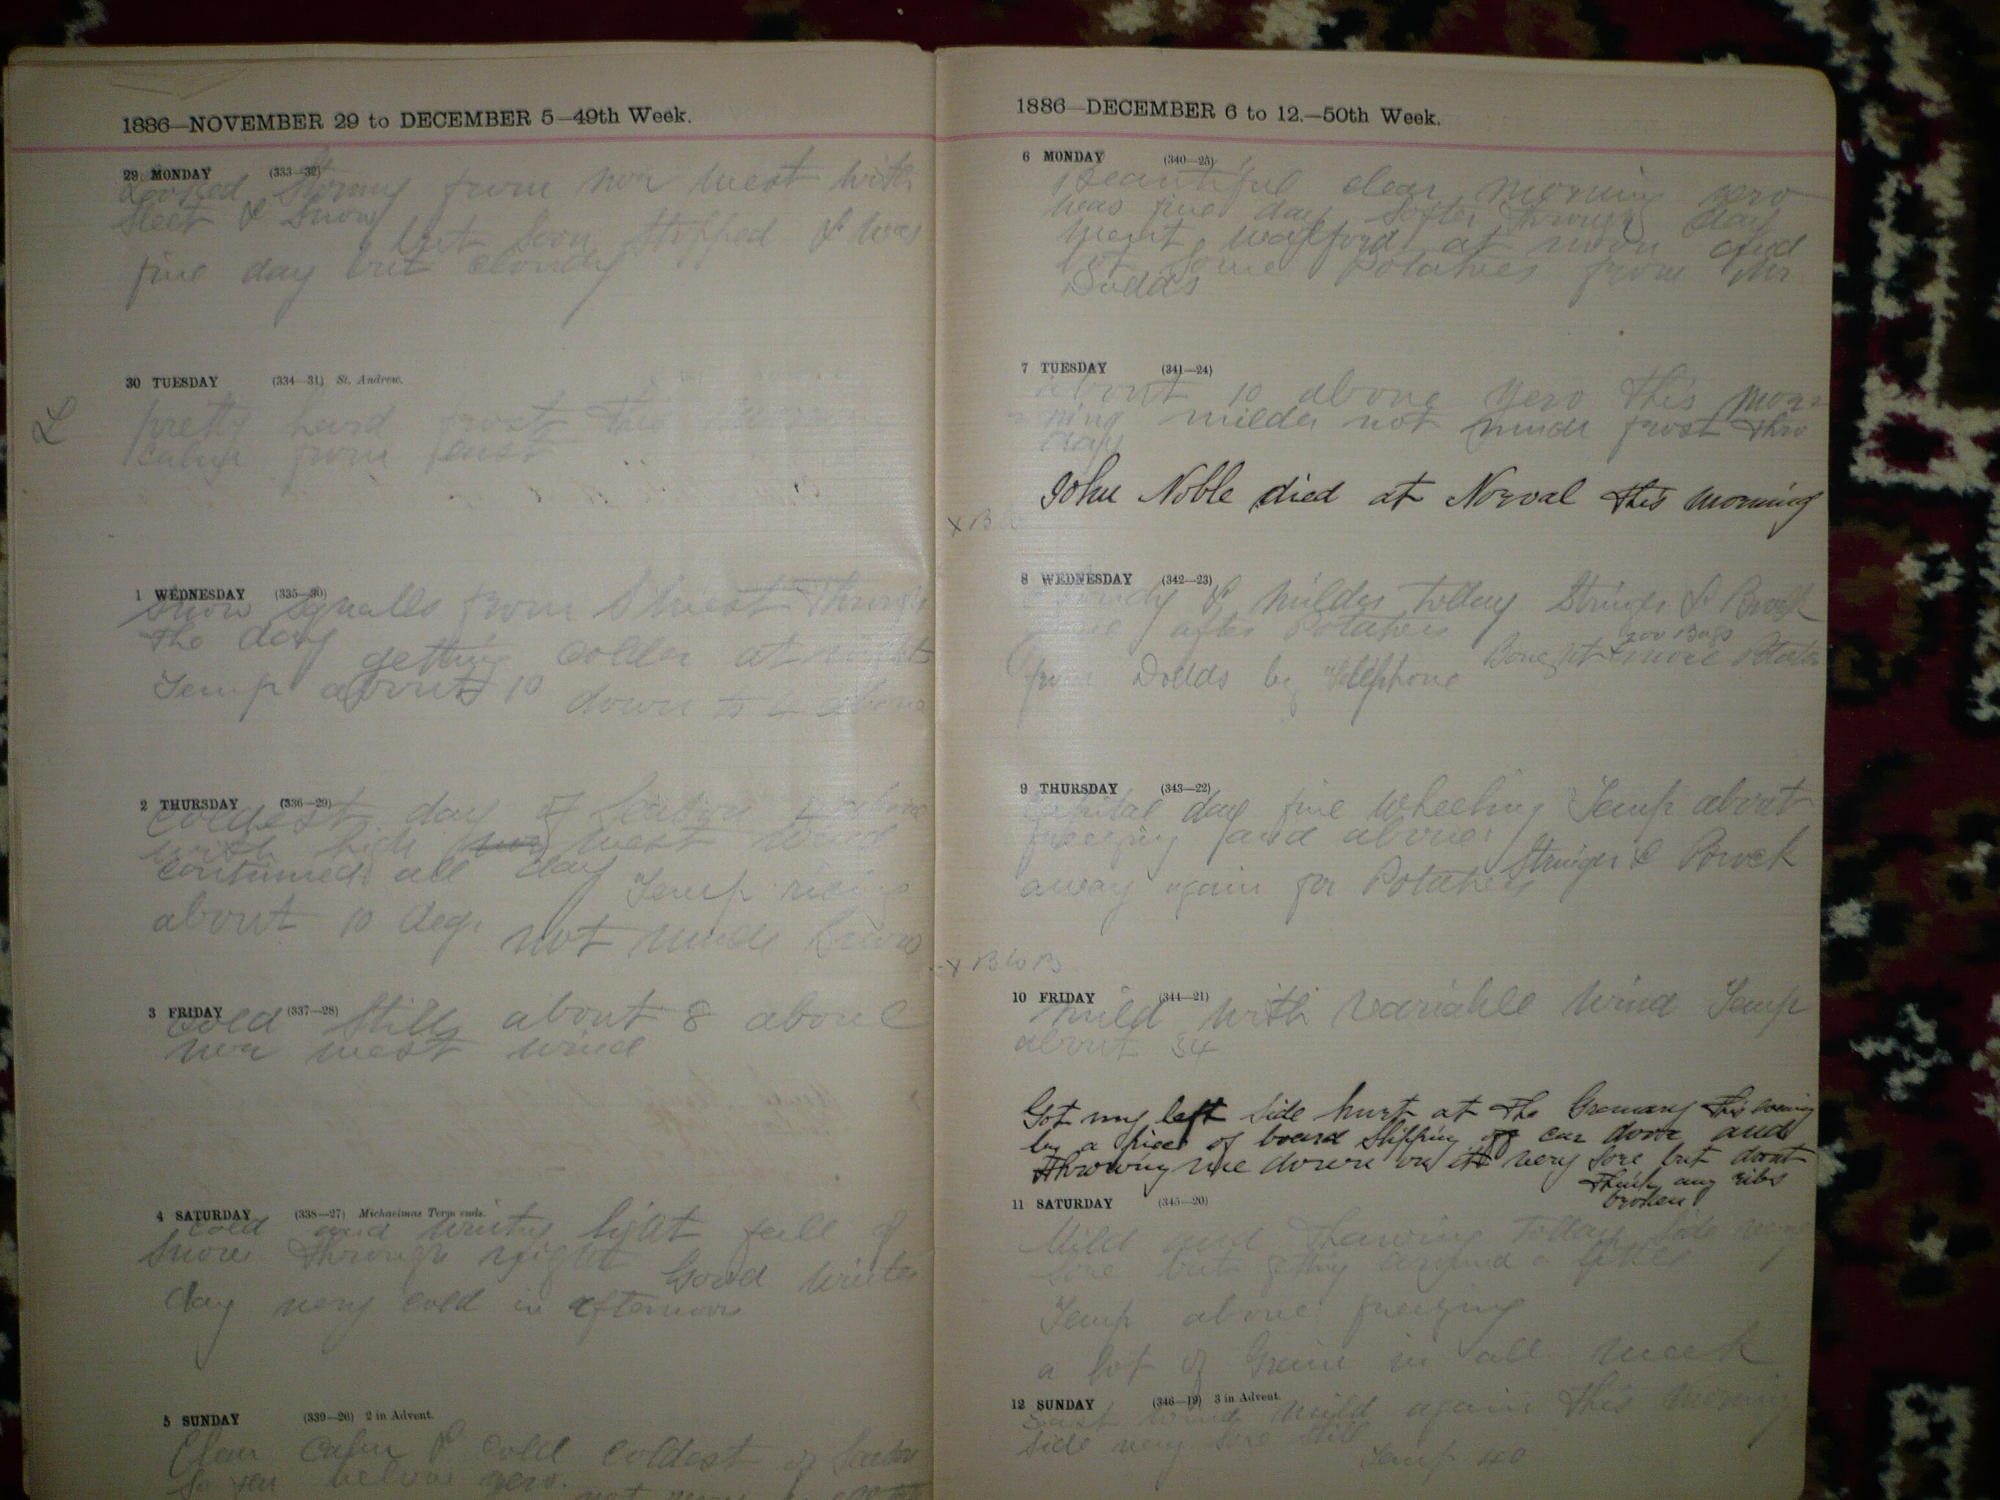 1886—NOVEMBER 29 to DECEMBER 5—49th Week.
29 MONDAY (333—32)
Looked Stormy from nor west with
Sleet & Snow
but soon stopped & was
fine day but cloudy
30 TUESDAY (334—31) St. Andrew.
L
pretty hard frost this
from East
1 WEDNESDAY (335—30)
Snow squalls from S West through
the day
getting colder at night
Temp about 10
down to above
2 THURSDAY (336—29)
Coldest day of Season
with high west wind
continued all day
Temp
about 10 deg.
not much Snow
3 FRIDAY (337—28)
Cold still about 8 above
nor west wind
4 SATURDAY (338—27) Michaelmas Term ends.
Cold and wintry light fall of
Snow through night
Good winter
day very cold in afternoon
5 SUNDAY (339—26) 2 in Advent.
Clear Calm & Cold Coldest of Season
So far below zero.
1886—DECEMBER 6 to 12.—50th Week.
6 MONDAY (340—25)
Beautiful clear morning zero
was fine day softer through day
went Watford at noon and
Got some Potatoes from Mr
Dodds
7 TUESDAY (341—24)
about 10 above zero this mor
ning milder not much frost thro
day
John Noble died at Norval this morning
X B
8 WEDNESDAY (342—23)
Cloudy & Milder today Stringer &
after Potatoes
200 Bags
Bought more Potatoes
from Dodds by Telephone
9 THURSDAY (343—22)
Capital day fine wheeling Temp about
freezing and above
Stringer &
away again for Potatoes
10 FRIDAY (344—21)
Mild with variable wind Temp
about 34
Got my left side hurt at the Granary this evening
by a piece of board slipping of car door and
throwing me down on it very sore but dont
think any ribs
broken
11 SATURDAY (345—20)
Mild and thawing today Side very
sore but getting around a little
Temp above freezing
a lot of Grain in all week
12 SUNDAY (346—19) 3 in Advent.
East wind mild again this morning
Side very sore still
Temp 40